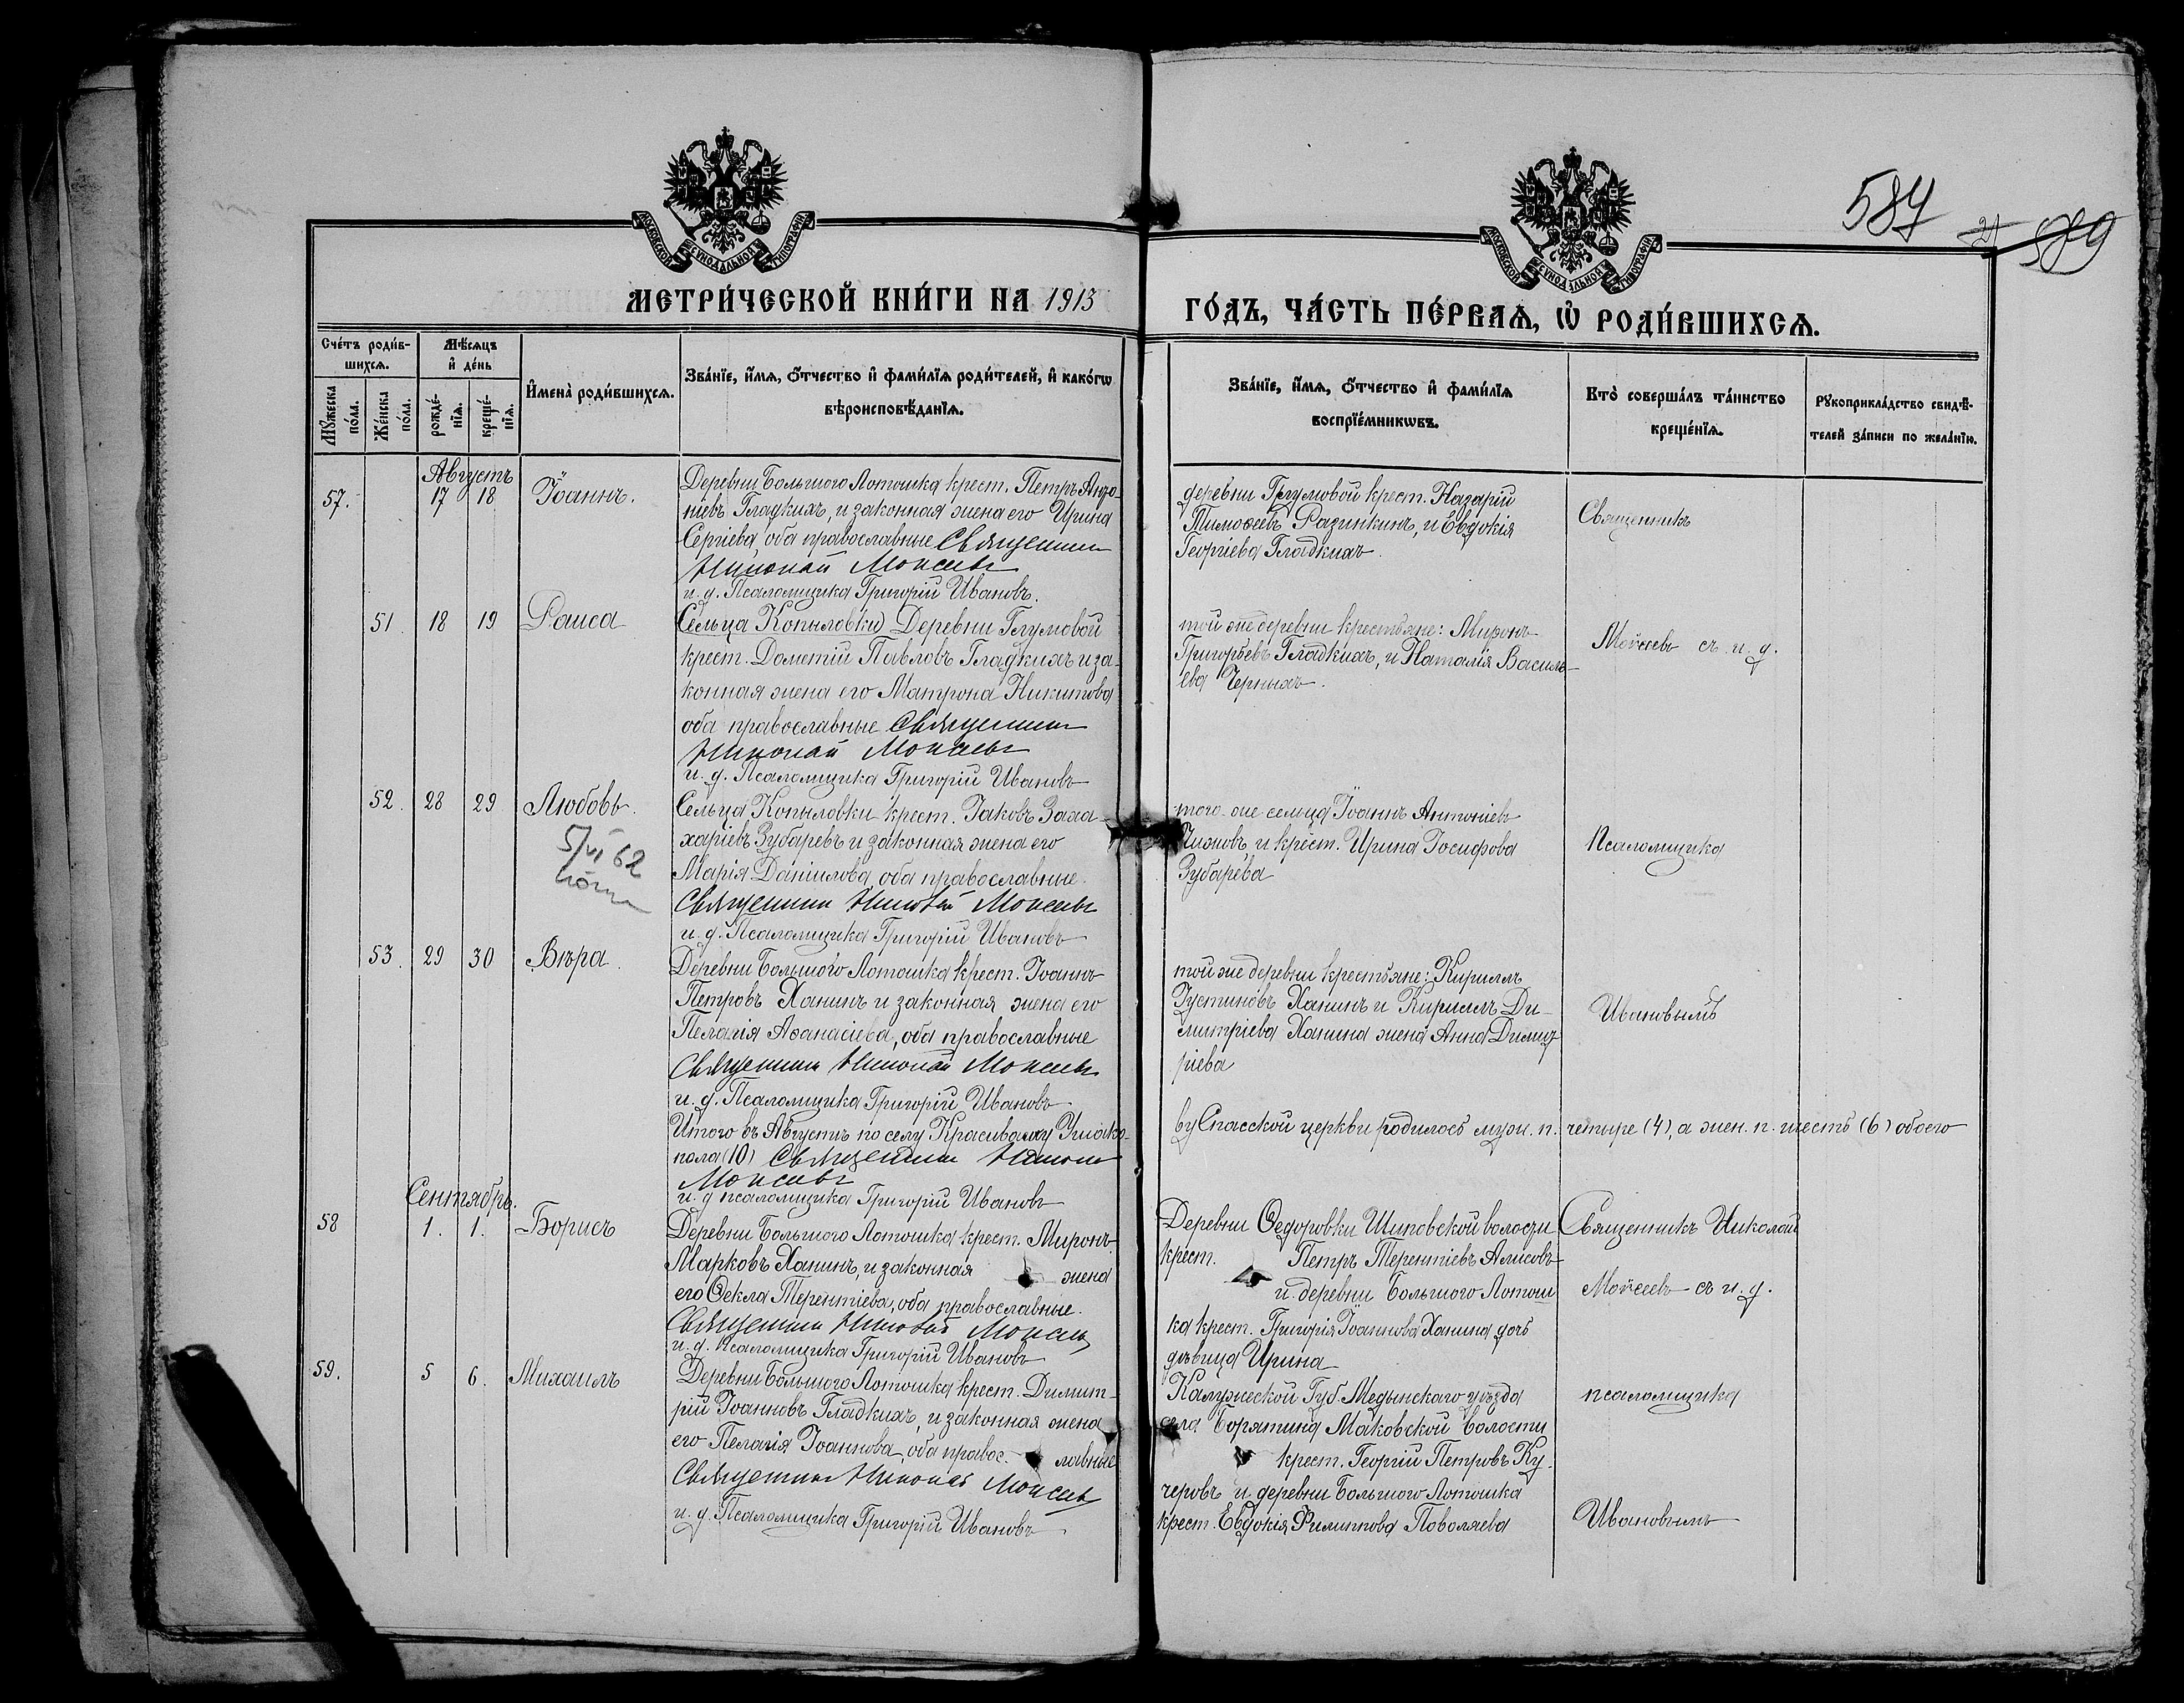 МОСКОВСКОЙ СѴНОДАЛЬНОЙ ТИПОГРАФІИ
МОСКОВСКОЙ СѴНОДАЛЬНОЙ ТИПОГРАФІИ
584
589
МЕТРИ́ЧЕСКОЙ КНИ́ГИ НА 1913
ГО́ДЪ, ЧА́СТЬ ПЕ́РВАѦ, Ѡ҆ РОДИ́ВШИХСѦ.
Сче́тъ роди́в-
шихсѧ.
Мѣ́сѧцъ
и҆ де́нь
Мꙋ́жеска
по́ла.
Же́нска
по́ла.
рожде́-
нїѧ.
креще́-
нїѧ.
И҆мена̀ роди́вшихсѧ.
Зва́нїе, и҆́мѧ, ѻ҆́тчество и҆ фами́лїѧ роди́телей, и҆ како́гѡ
вѣроисповѣ́данїѧ.
Зва́нїе, и҆́мѧ, ѻ҆́тчество и҆ фами́лїѧ
воспрїе́мникѡвъ.
Кто̀ соверша́лъ та́инство
креще́нїѧ.
Рꙋкоприкла́дство свидѣ́-
телей за́писи по жела́нїю.
Августъ
57. 17 18 Іоаннъ.
Деревни Большого Лотошка крест. Петръ Анто-
ніевъ Гладкихъ, и законная жена его Ирина
Сергіева, оба православные Священник
Николай Моисеевъ
и. д. Псаломщика Григорій Ивановъ.
деревни Глумовой крест. Назарій
Тимоѳеевъ Разинкинъ, и Евдокія
Георгіева Гладкихъ.
Священникъ
51. 18 19 Раиса
(Сельца Копыловки) Деревни Глумовой
крест. Дометій Павловъ Гладкихъ и за-
конная жена его Матрона Никитова
оба православные Священник
Николай Моисеевъ
и. д. Псаломщика Григорій Ивановъ
той же деревни крестьяне: Миронъ
Григорьевъ Гладкихъ, и Наталія Василь-
ева Черныхъ.
Моисеевъ съ и. д.
52. 28 29 Любовь.
5/VI 62
Сельца Копыловки крест. Іаковъ Заха-
харіевъ Зубаревъ и законная жена его
Марія Даніилова, оба православные.
Священник Николай Моисеевъ
и. д. Псаломщика Григорій Ивановъ
того-же сельца Іоаннъ Антоніевъ
Чижовъ и крест. Ирина Іосифова
Зубарева
Псаломщика
53. 29 30 Вѣра.
Деревни Большого Лотошка крест. Іоаннъ
Петровъ Ханинъ и законная жена его
Пелагія Аѳанасіева, оба православные
Священник Николай Моисеевъ
и. д. Псаломщика Григорій Ивановъ
той же деревни крестьяне: Кириллъ
Іустиновъ Ханинъ и Кириллъ Ди-
митріева Ханина жена Анна Димит
ріева
Ивановымъ
Итого въ Августѣ по селу Красивому Ушако-
ву Спасской церкви родилось муж. п. четыре (4), а жен. п. шесть (6) обоего
пола (10) Священник Николай
Моисеевъ
и. д псаломщика Григорій Ивановъ
Сентябрь.
58 1. 1. Борисъ
Деревни Большого Лотошка крест. Миронъ
Марковъ Ханинъ, и законная жена
его Ѳекла Терентіева, оба православные.
Священник Николай Моисеевъ
и. д. Псаломщика Григорій Ивановъ
Деревни Ѳедоровки Шиповской волости
крест. Петръ Терентіевъ Алисовъ
и деревни Большого Лотош
ка крест. Григорія Іоаннова Ханина дочь
дѣвица Ирина
Священникъ Николай
Моисеевъ съ и. д.
59. 5 6. Михаилъ
Деревни Большого Лотошка крест. Димит-
рій Іоанновъ Гладкихъ, и законная жена
его Пелагія Іоаннова, оба правос- лавные
Священник Николай Моисеевъ
и. д. Псаломщика Григорій Ивановъ
Калужской Губ. Медынскаго уѣзда
села Борятина Маковской Волости
крест. Георгій Петровъ Ку-
черовъ и деревни Большого Лотошка
крест. Евдокія Филиппова Поволяева
псаломщика
Ивановымъ